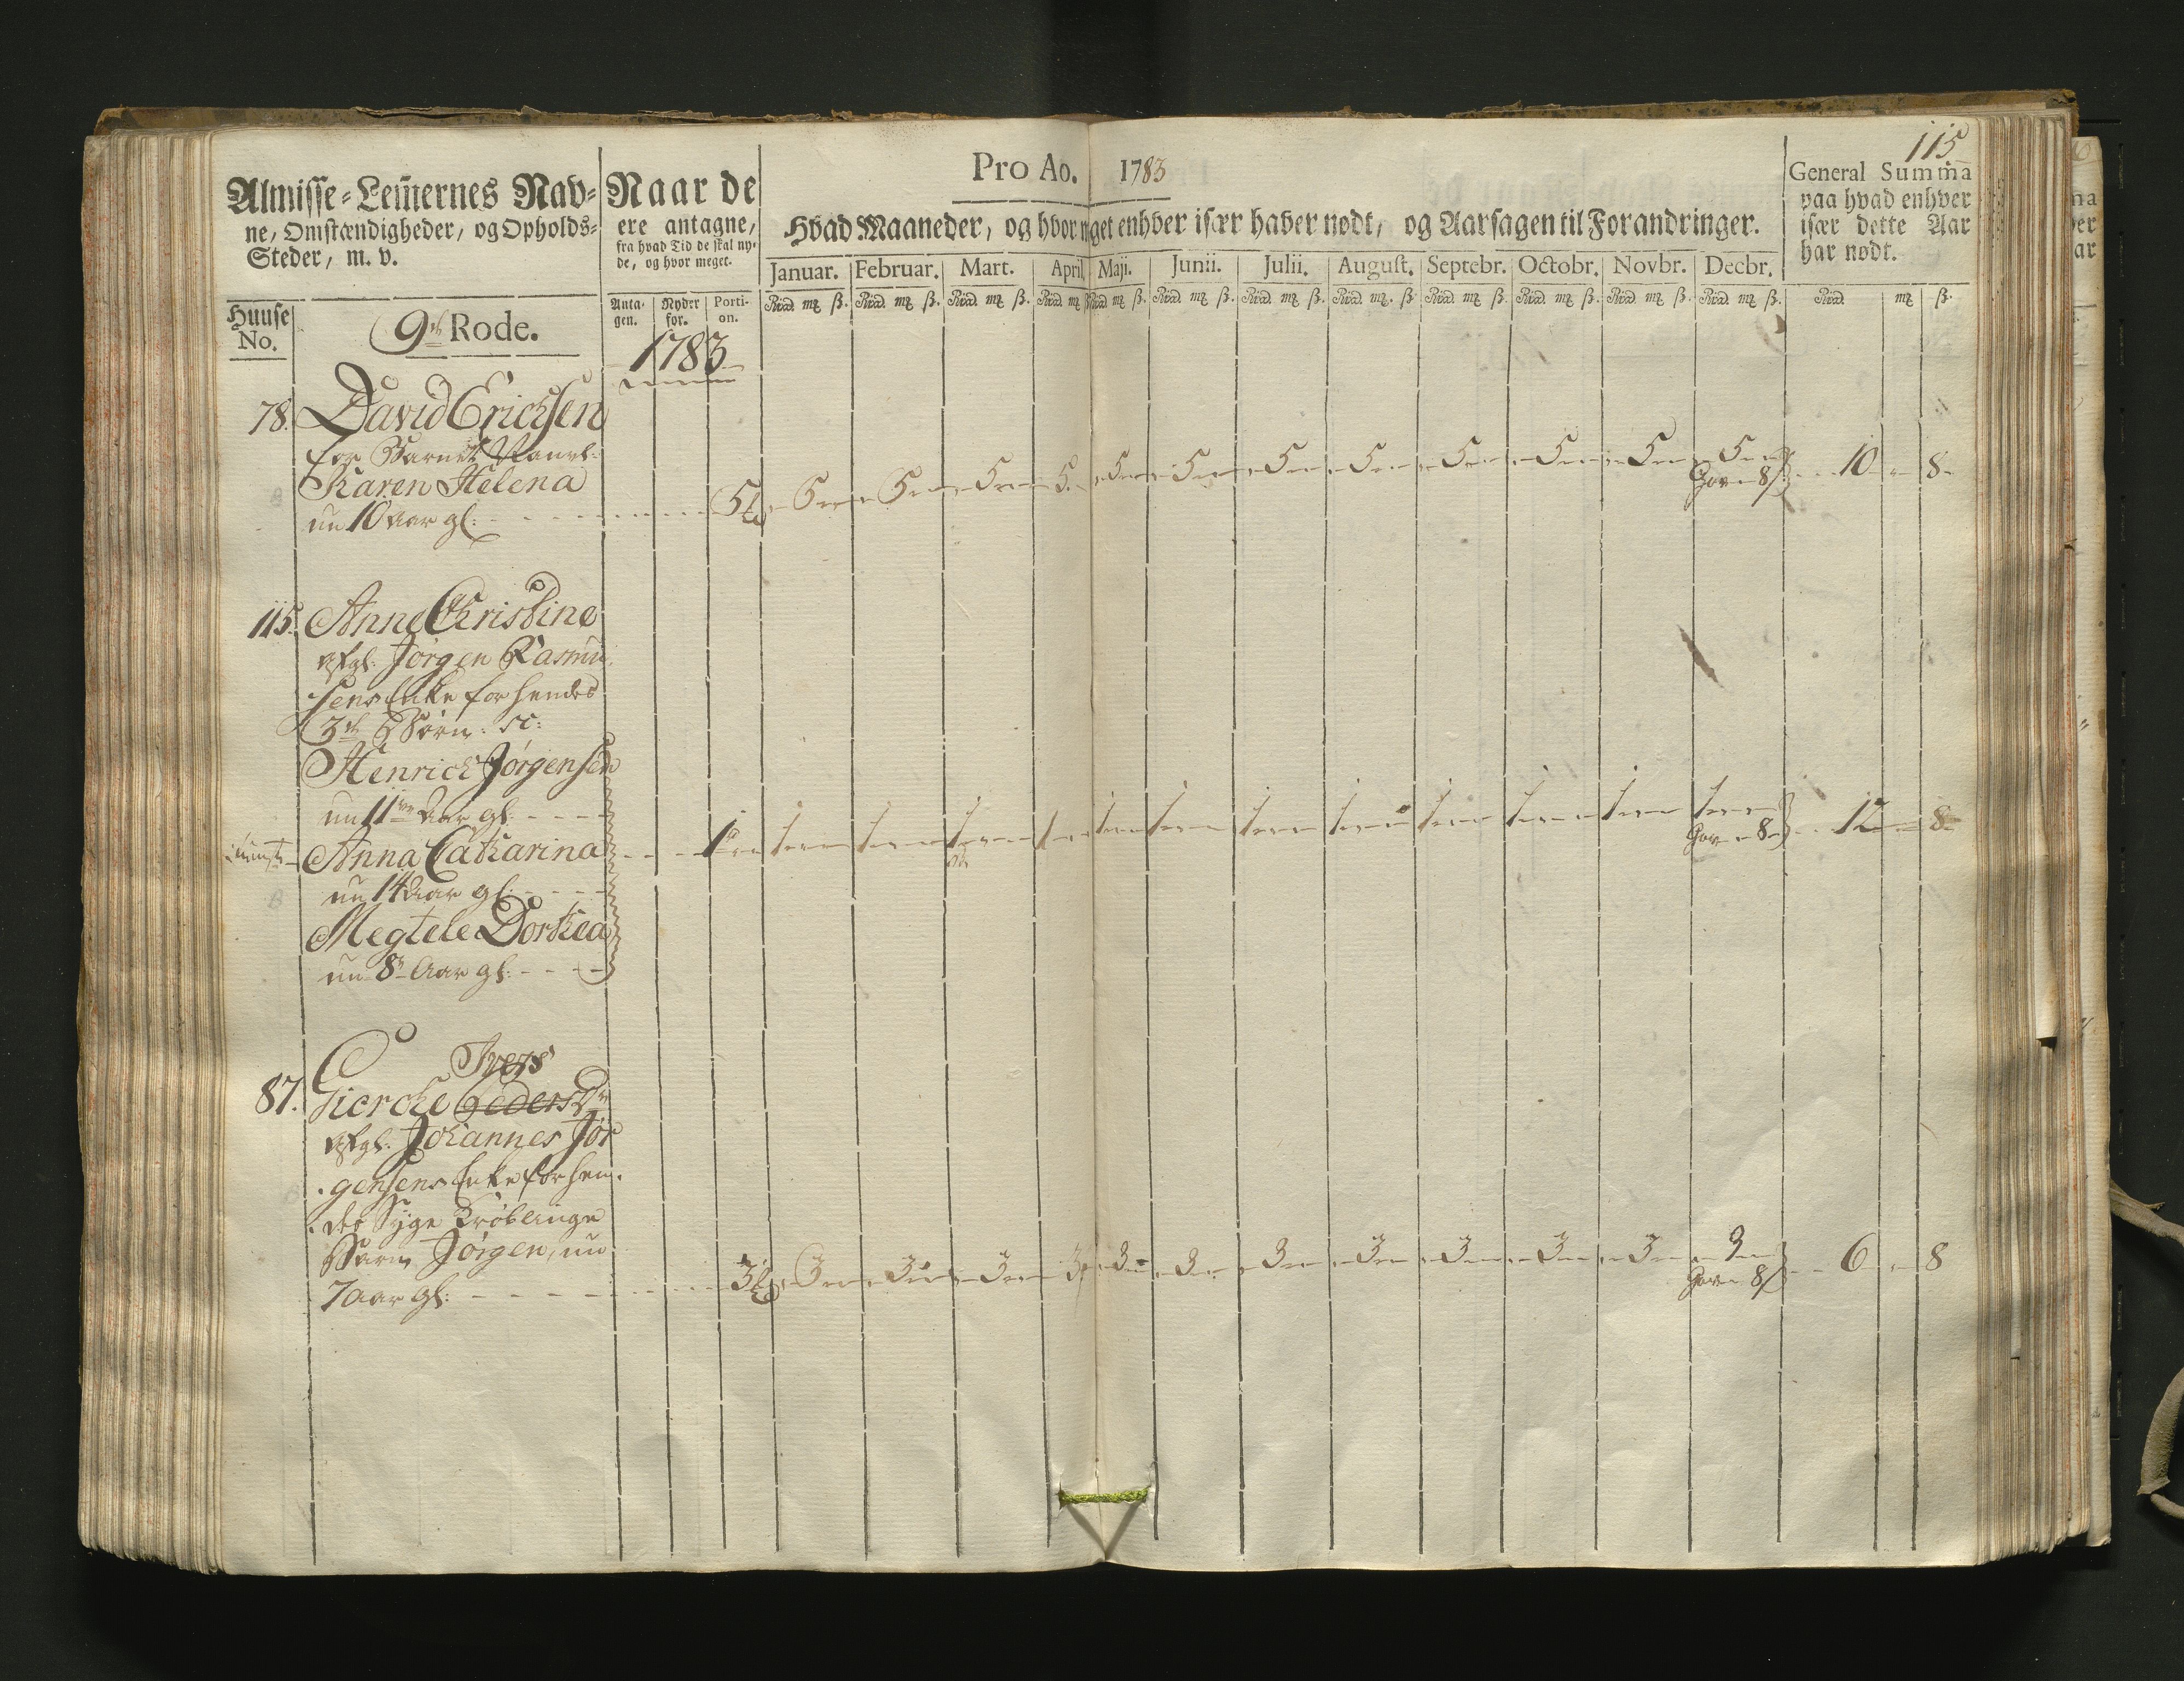 115
Almisse-Lem̄ernes Nav-
ne, Omstændigheder, og Opholds-
Steder, m. v.
Naar de
ere antagne,
fra hvad Tid de skal ny-
de, og hvor meget.
Pro Ao. 1783
Hvad Maaneder, og hvor meget enhver især haver nødt, og Aarsagen til Forandringer.
General Sum̄a
paa hvad enhver
især dette Aar
har nødt.
Januar. Februar. Mart. April. Maji. Junii. Julii. August. Septebr. Octobr. Novbr. Decbr.
Huuse
No.
9de Rode.
Anta-
gen.
Nyder
for.
Porti-
on.
Rd. mk ß. Rd. mk ß. Rd. mk ß. Rd. mk Rd. mk ß. Rd. mk ß. Rd. mk ß. Rd. mk. ß. Rd. mk ß. Rd. mk ß. Rd. mk ß. Rd. mk ß. Rd. mk ß.
1783
78. David Erichsen
for Barnet Navnl:
Karen Helena
nu 10 Aar gl: 5 5 5 5 5 5 5 5 5 5 5 5 5 10 8
Gave 8ß
115. Anne Christine
afgl: Jörgen Rasmu
sens Enke for hendes
3de Börn. sc:
Henrich Jörgensen
nu 11ve Aar gl:
Anna Catharina 1 1 1 1 1 1 1 1 1 1 1 1 1 12 8
Gave 8
nu 14 Aar gl:
Megtele Dorthea
nu 8te Aar gl:
Ivers
87. Giercke Peders Dr
afgl: Johannes Jör
gensens Enke for hen
des Syge Kröblinge
Barn Jörgen, nu
7 Aar gl: 3 3 3 3 3 3 3 3 3 3 3 3 3 6 8
Gave 8ß